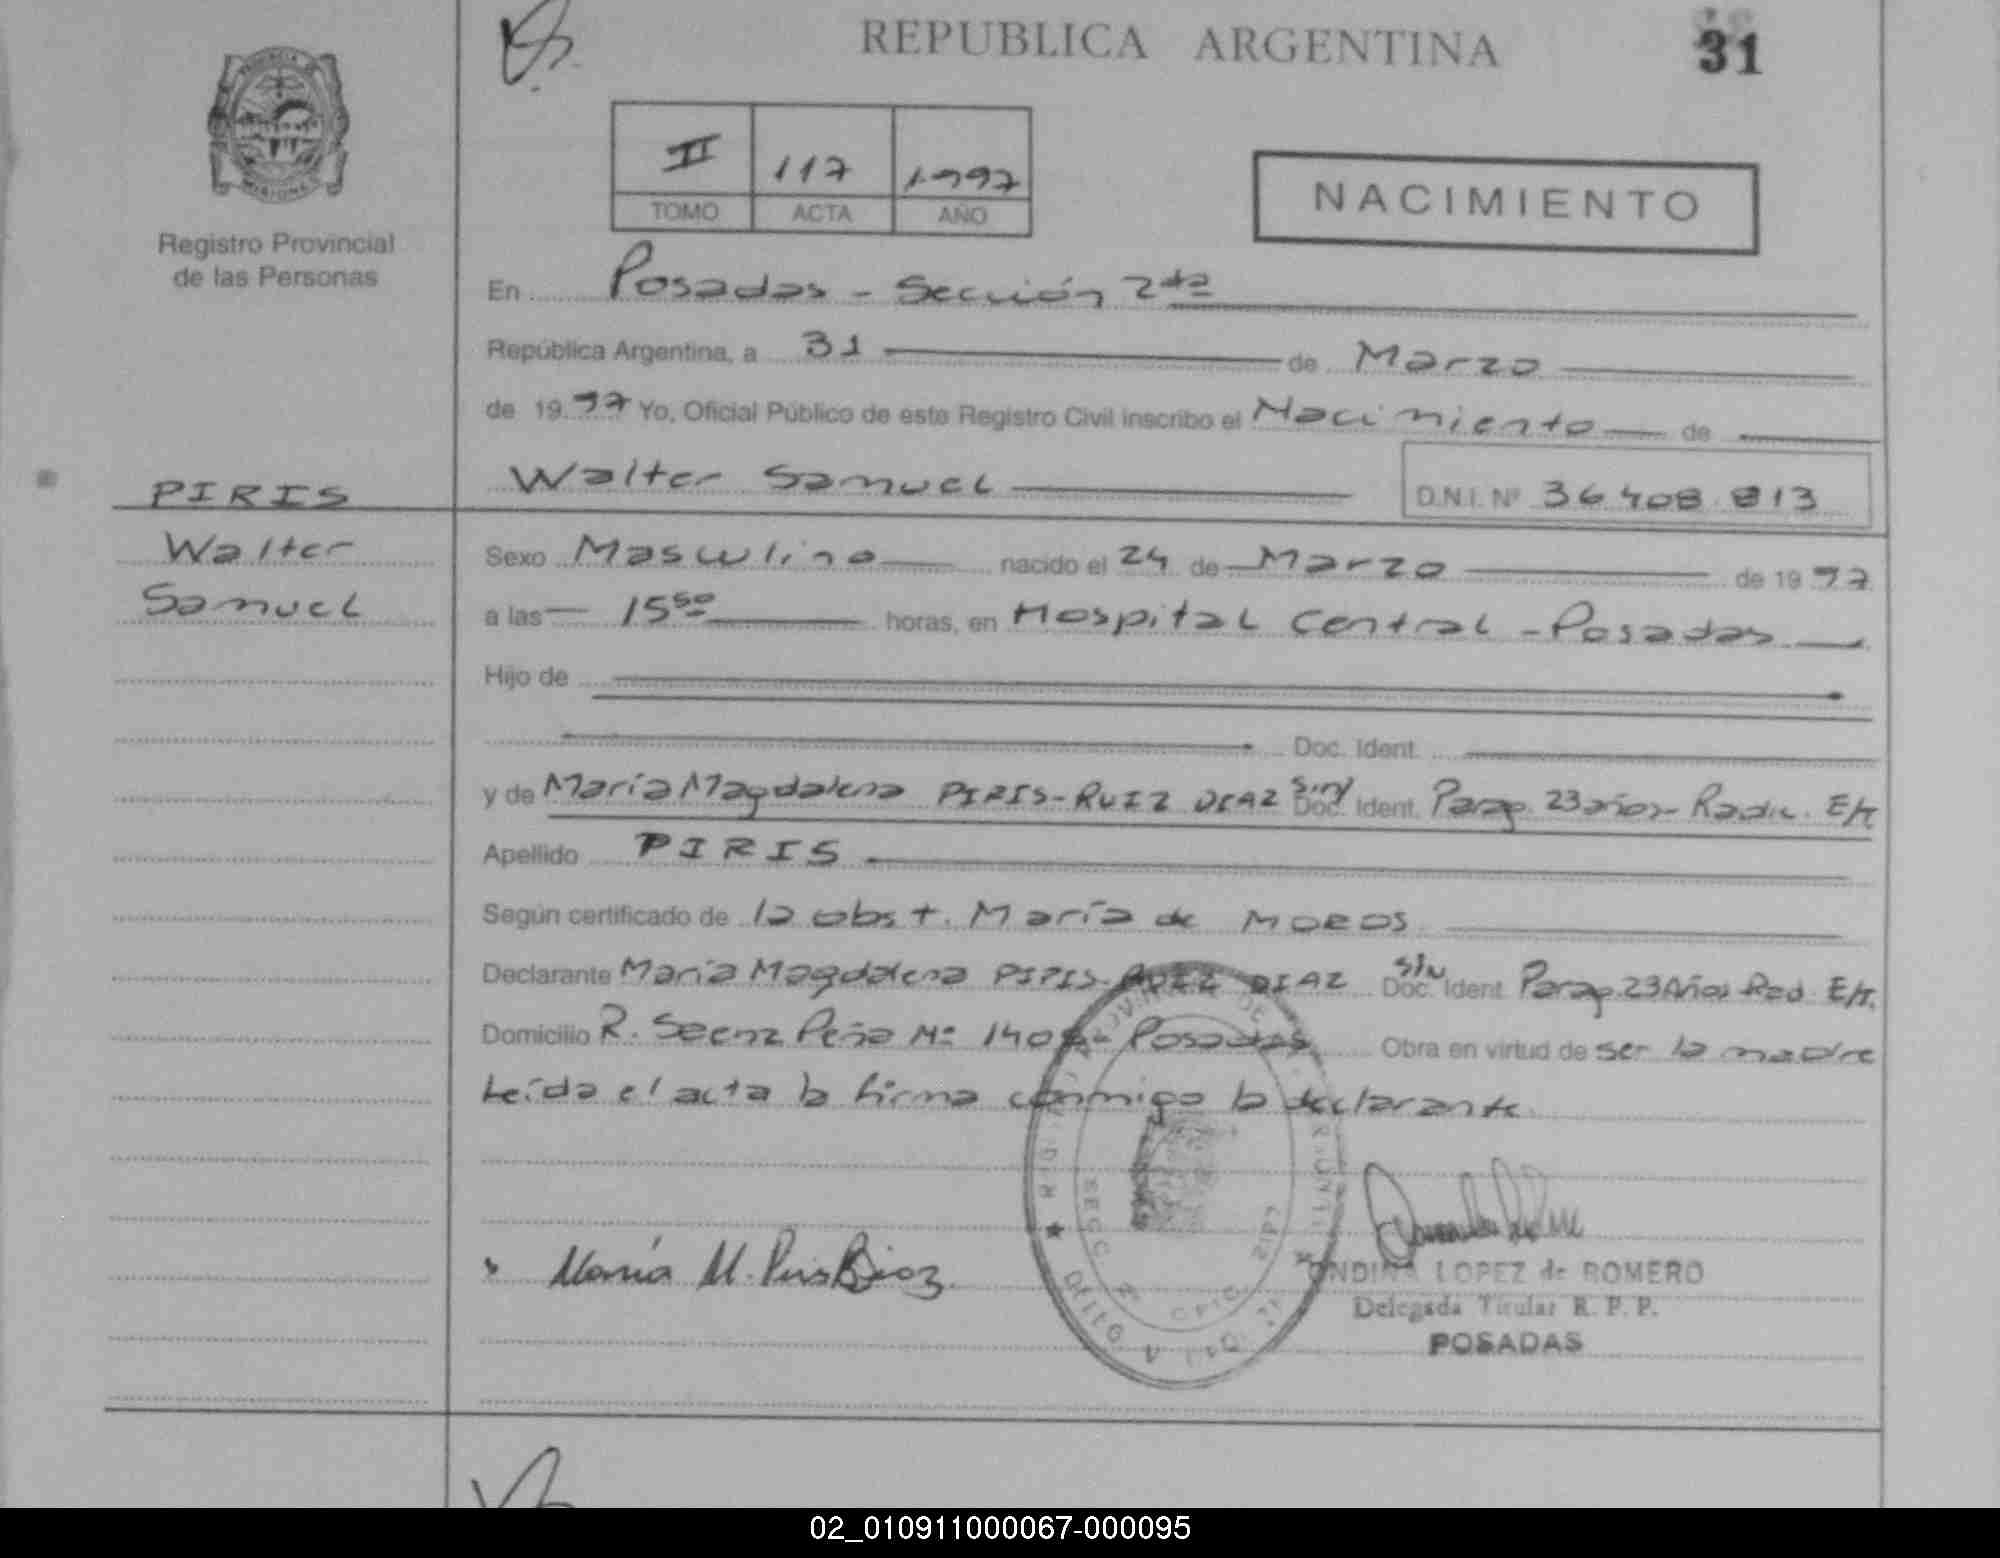 REPUBLICA ARGENTINA
31
II 117 1997
TOMO ACTA AÑO
NACIMIENTO
Registro Provincial
de las Personas
En Posadas - Sección 2da
República Argentina, a 31 de Marzo
de 1997 Yo, Oficial Público de este Registro Civil inscribo el Nacimiento de
Walter Samuel D.N.I. Nº 36.408.813
PIRIS
Walter
Samuel
Sexo Masculino nacido el 24 de Marzo de 1997
a las 15⁵⁰ horas, en Hospital Central - Posadas
Hijo de
Doc. Ident.
y de María Magdalena PIRIS-RUIZ DIAZ sin/ Doc. Ident. Parag. 23 años - Radic. E/t
Apellido PIRIS
Según certificado de la obst. María de MOROS
Declarante María Magdalena PIRIS-RUIZ DIAZ SIN Doc. Ident. Parag. 23 Años Rad. E/t.
Domicilio R. Saenz Peña Nº - Posadas Obra en virtud de ser la madre
Leída el acta la firma conmigo la declarante.
María M. Piris
ONDINA LOPEZ de ROMERO
Delegada Titular R. P. P.
POSADAS
02_010911000067-000095